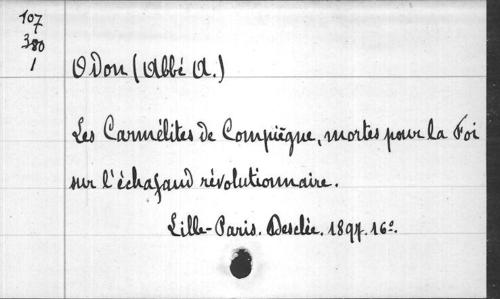 107
7
380
1
Odon (Abbé A.)
Les Carmélites de Compiègne, mortes pour la Foi
sur l'échafaud révolutionnaire.
Lille-Paris. Desclée. 1897. 16º.